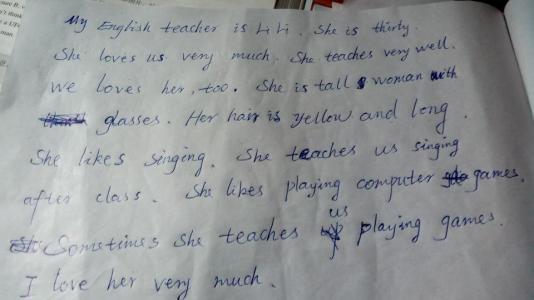 My English teacher is Li Li. She is thirty.
She loves us very much. She teaches very well.
We loves her, too. She is tall woman with
glasses. Her hair is yellow and long.
She likes singing. She teaches us singing
after class. She likes playing computer games.
Sometimes she teaches us playing games.
I love her very much.